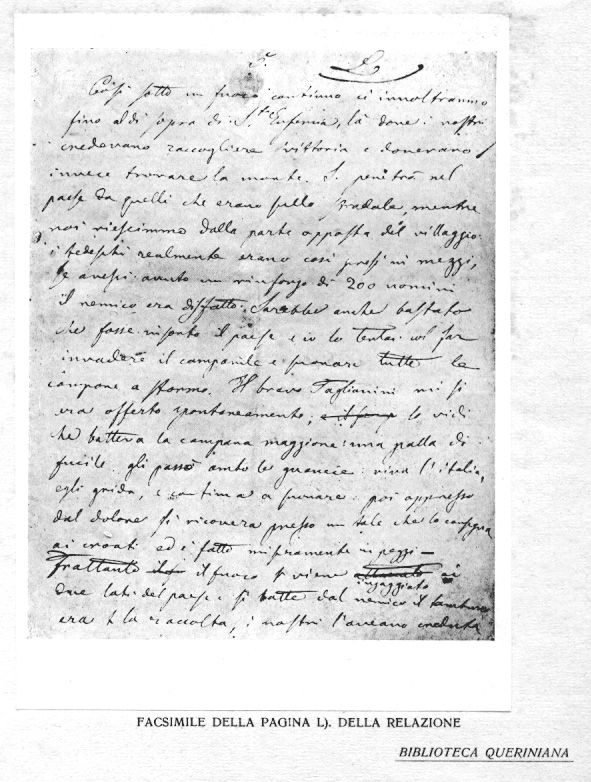 L)
Così sotto un fuoco continuo ci innoltrammo
fino al di sopra di S.ta Eufemia, là dove i nostri
credevano raccogliere vittoria e dovevano
invece trovare la morte. Si penetrò nel
paese da quelli che erano sullo stradale, mentre
noi riescimmo dalla parte opposta del villaggio
i tedeschi realmente erano così presi in mezzo,
se avessi avuto un rinforzo di 200 uomini
il nemico era disfatto. Sarebbe anche bastato
che fosse insorto il paese e io lo tentai col far
invadere il campanile e suonare tutte le
campane a stormo. Il bravo Taglianini mi si
era offerto spontaneamente, lo vidi
che batteva la campana maggiore: una palla di
fucile gli passò ambo le guancie: viva l'italia,
egli grida, e continua a suonare: poi oppresso
dal dolore si ricovera presso un tale che lo consegna
ai croati ed è fatto miseramente in pezzi —
Frattanto il fuoco si viene ingaggiato ai
due lati del paese e si batte dal nemico il tamburo
era la raccolta, i nostri l'aveano creduta
FACSIMILE DELLA PAGINA L). DELLA RELAZIONE
BIBLIOTECA QUERINIANA